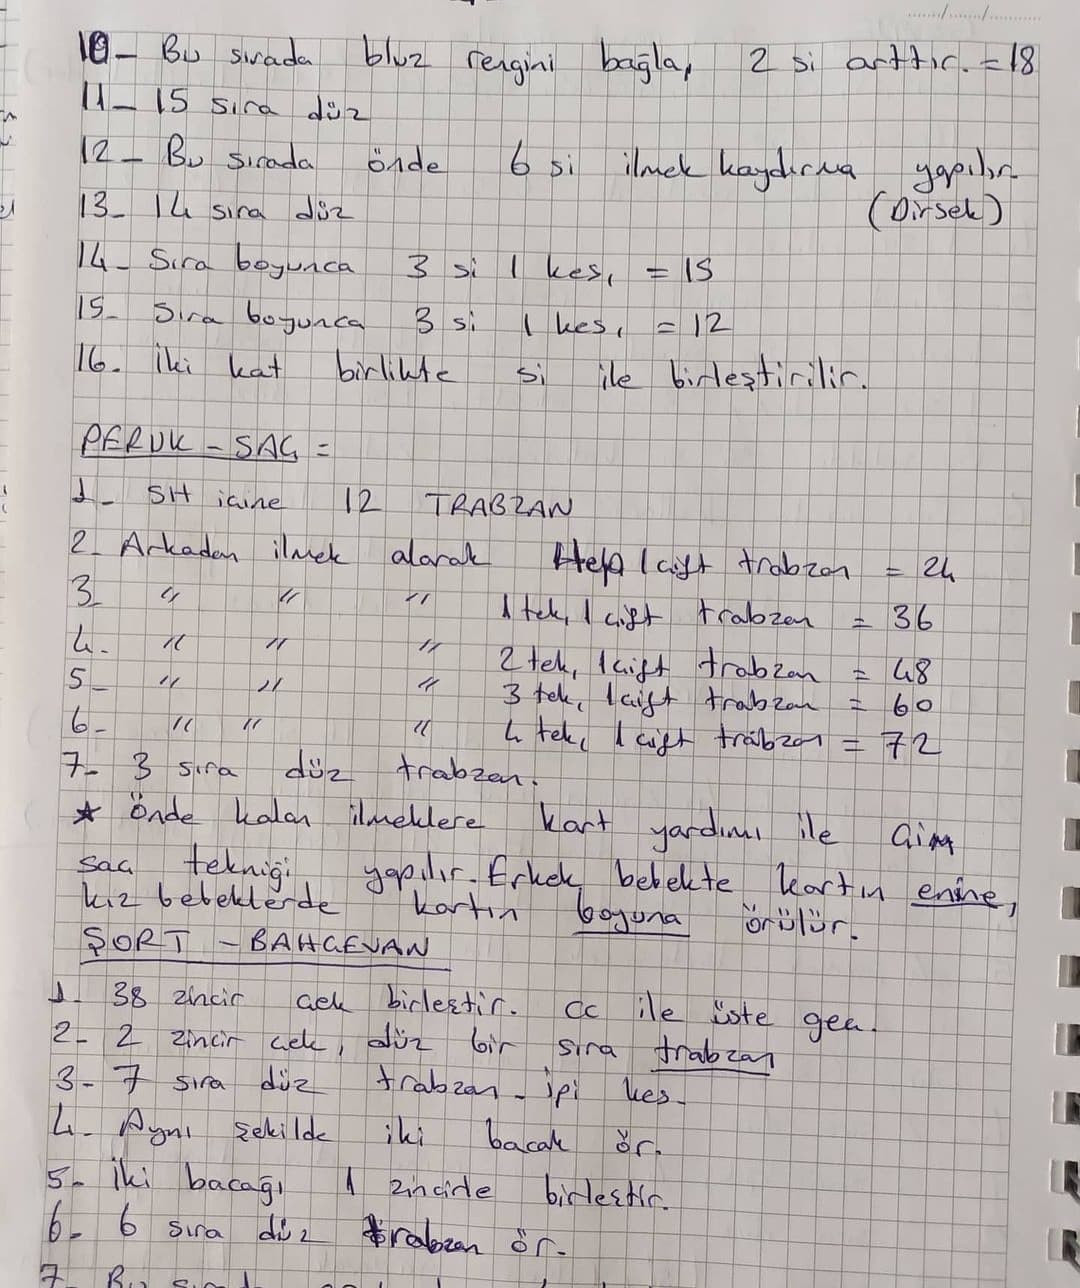 10- Bu sırada bluz rengini bağla, 2 si arttır. = 18
11- 15 sıra düz
12- Bu sırada önde 6 si ilmek kaydırma yapılır
13- 14 sıra düz (Dirsek)
14- Sıra boyunca 3 si 1 kes, = 15
15- Sıra boyunca 3 si 1 kes, = 12
16. İki kat birlikte si ile birleştirilir.
PERUK - SAÇ =
1- SH içine 12 TRABZAN
2- Arkadan ilmek alarak Hep 1 çift trabzan = 24
3- " " " 1 tek, 1 çift trabzan = 36
4. " " " 2 tek, 1 çift trabzan = 48
5- " " " 3 tek, 1 çift trabzan = 60
6- " " " 4 tek, 1 çift trabzan = 72
7- 3 sıra düz trabzan.
* Önde kalan ilmeklere kart yardımı ile çim
saç tekniği yapılır. Erkek bebekte kartın enine,
kız bebeklerde kartın boyuna örülür.
ŞORT - BAHÇEVAN
1- 38 zincir çek birleştir. CC ile üste geç.
2- 2 zincir çek, düz bir sıra trabzan
3- 7 sıra düz trabzan - ipi kes.
4- Aynı şekilde iki bacak ör.
5- İki bacağı 1 zincirle birleştir.
6- 6 sıra düz trabzan ör.
7-